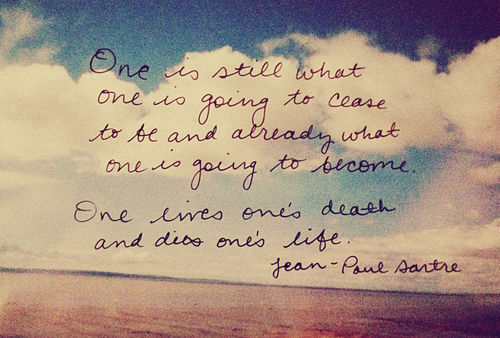 One is still what
one is going to cease
to be and already what
one is going to become.
One lives one's death
and dies one's life.
Jean-Paul Sartre